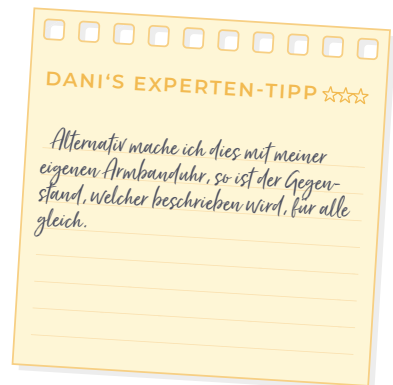 DANI'S EXPERTEN-TIPP
Alternativ mache ich dies mit meiner
eigenen Armbanduhr, so ist der Gegen-
stand, welcher beschrieben wird, für alle
gleich.